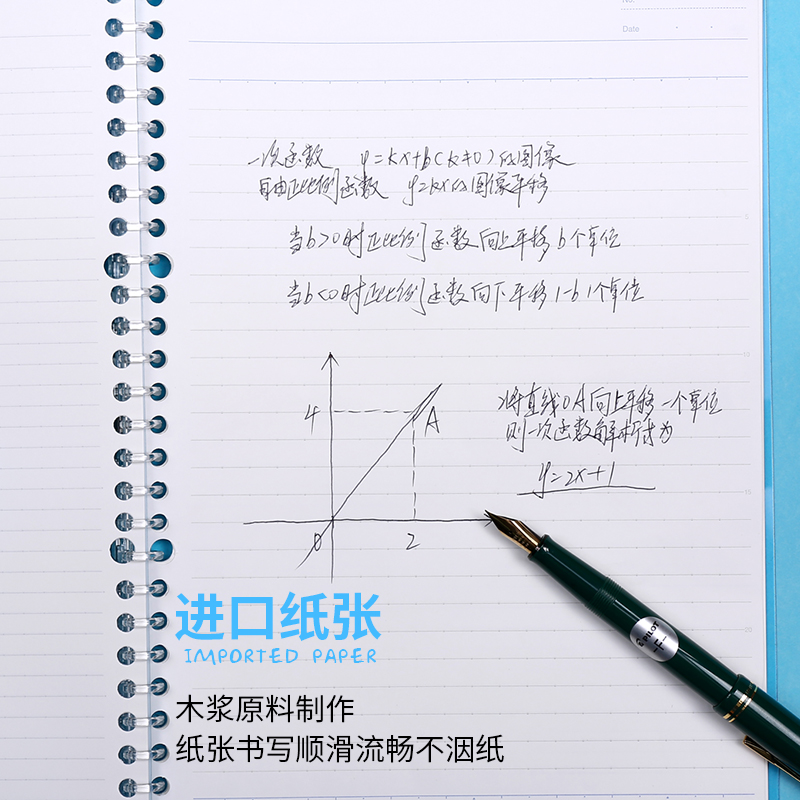 No.
Date
一次函数 y=kx+b(k≠0)的图像
自由正比例函数 y=kx的图像平移
当b>0时正比例函数向上平移b个单位
当b<0时正比例函数向下平移|-b|个单位
将直线OA向上平移一个单位
则一次函数解析式为
y=2x+1
4
A
0
2
PILOT
-F-
进口纸张
IMPORTED PAPER
木浆原料制作
纸张书写顺滑流畅不洇纸